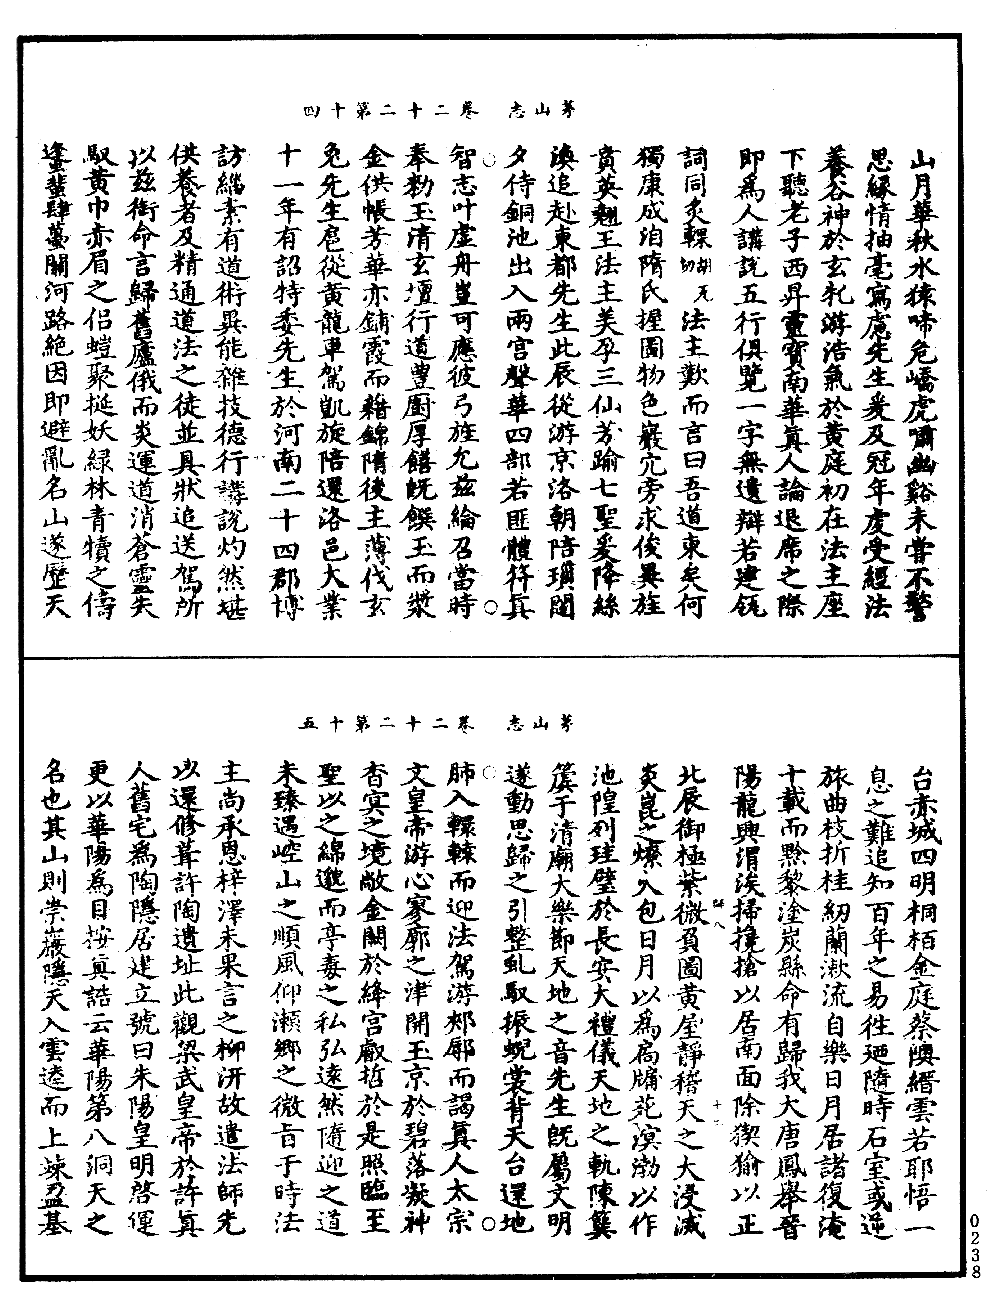 茅山志　卷二十二第十四
山月華秋水猿啼危嶠虎嘯幽谿未嘗不警
思緣情抽毫寫慮先生爰及冠年虔受經法
養谷神於玄牝游浩氣於黃庭初在法主座
下聽老子西昇靈寶南華真人論退席之際
即為人講說五行俱覽一字無遺辯若建瓴
詞同炙輠胡瓦切法主歎而言曰吾道東矣何
獨康成洎隋氏握圖物色巖穴旁求俊異旌
賁英翹王法主美孕三仙芳踰七聖爰降絲
渙追赴東都先生此辰從游京洛朝陪瑣闥
夕侍銅池出入兩宫聲華四部若匪體符真
智志叶虛舟豈可應彼弓旌允兹綸召當時
奉勑玉清玄壇行道豊厨厚饍旣饌玉而漿
金供帳芳華亦鋪霞而藉錦隋後主薄伐玄
兔先生扈從黃龍車駕凱旋陪還洛邑大業
十一年有詔特委先生於河南二十四郡博
訪緇素有道術異能雜技德行講說灼然堪
供養者及精通道法之徒並具狀追送駕所
以兹銜命言歸舊廬俄而炎運道消蒼靈失
馭黃巾赤眉之侣螘聚挻妖綠林青犢之儔
逢蠆肆蠆關河路絶因即避亂名山遂歷天
茅山志　卷二十二第十五
台赤城四明桐栢金庭蔡隩縉雲若耶悟一
息之難追知百年之易徃廼隨時石室或逆
旅曲枝折桂紉蘭漱流自樂日月居諸復淹
十載而黔黎塗炭縣命有歸我大唐鳳舉晉
陽龍興渭涘掃攙搶以居南面除猰㺄以正
北辰御極紫微負圖黃屋靜稽天之大浸滅
炎崑之燎火包日月以為扃牖苑溟渤以作
池隍列珪璧於長安大禮儀天地之軌陳簨
簴于清廟大樂節天地之音先生旣屬文明
遂動思歸之引整虬馭振蜺裳背天台還地
肺入轘轅而迎法駕游郟鄏而謁真人太宗
文皇帝游心寥廓之津開玉京於碧落凝神
杳㝠之境敞金闕於絳宫叡哲於是照臨至
聖以之綿邈而亭毒之私弘遠然隨迎之道
未臻遇崆山之順風仰瀨鄉之微旨于時法
主尚承恩梓澤未果言之柳汧故遣法師先
以還修葺許陶遺址此觀梁武皇帝於許真
人舊宅為陶隱居建立號曰朱陽皇明啓運
更以華陽為目按真誥云華陽第八洞天之
名也其山則崇巖隱天入雲逵而上竦盈基
0238